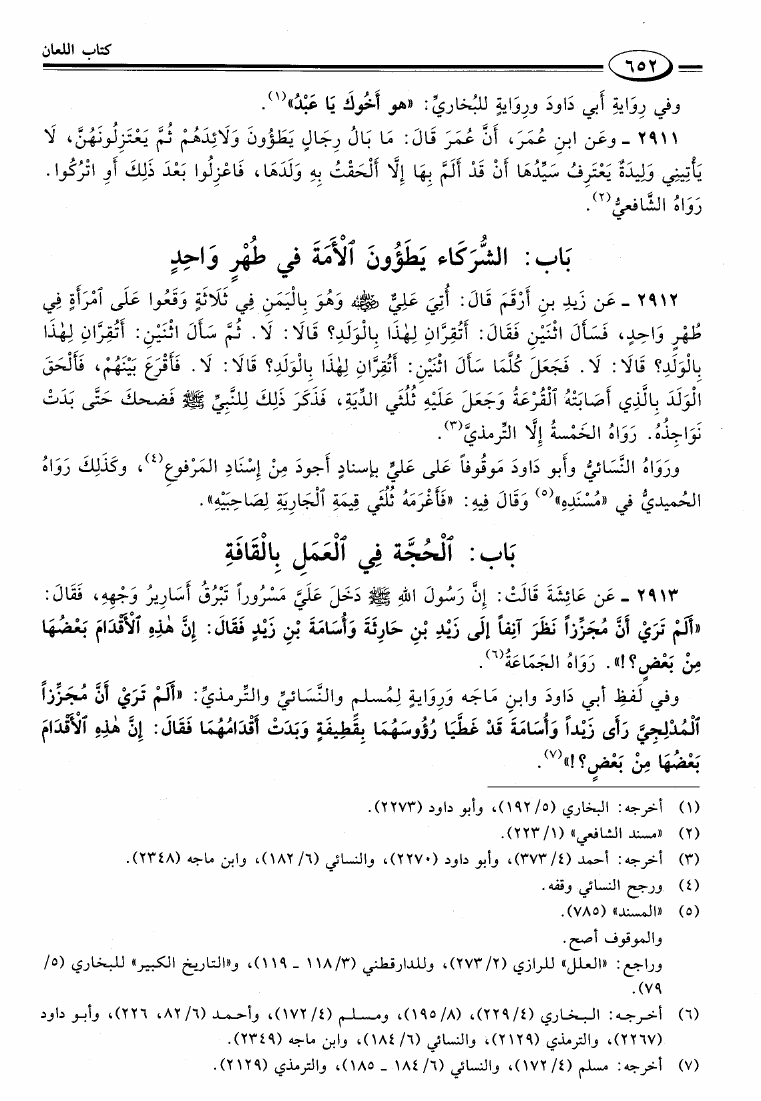 كتاب اللعان
٦٥٢
وفي رِوَايةِ أَبي دَاودَ ورِوَايةٍ للبُخاريِّ: «هو أَخُوكَ يَا عَبْدُ»(١).
٢٩١١ ـ وعَن ابنِ عُمَرَ، أَنَّ عُمَرَ قَالَ: مَا بَالُ رِجَالٍ يَطَؤُونَ وَلَائِدَهُمْ ثُمَّ يَعْتَزِلُونَهُنَّ، لَا
يَأْتِيني وَلِيدَةٌ يَعْتَرِفُ سَيِّدُهَا أَنْ قَدْ أَلَمَّ بِهَا إِلَّا أَلْحَقْتُ بِهِ وَلَدَهَا، فَاعْزِلُوا بَعْدَ ذَلِكَ أَوِ اتْرُكُوا.
رَوَاهُ الشَّافعيُّ(٢).
بَاب: الشُّرَكَاء يَطَؤُونَ ٱلْأَمَةَ في طُهْرٍ وَاحِدٍ
٢٩١٢ ـ عَن زَيدِ بنِ أَرْقَمَ قَالَ: أُتِيَ عَلِيٌّ ﵁ وَهُوَ بِالْيَمَنِ فِي ثَلَاثَةٍ وَقَعُوا عَلَى ٱمْرَأَةٍ فِي
طُهْرٍ وَاحِدٍ، فَسَأَلَ اثْنَيْنِ فَقَالَ: أَتُقِرَّانِ لِهٰذَا بِالْوَلَدِ؟ قَالَا: لَا. ثُمَّ سَأَلَ اثْنَيْنِ: أَتُقِرَّانِ لِهٰذَا
بِالْوَلَدِ؟ قَالَا: لَا. فَجَعَلَ كُلَّمَا سَأَلَ اثْنَيْنِ: أَتُقِرَّانِ لِهٰذَا بِالْوَلَدِ؟ قَالَا: لَا. فَأَقْرَعَ بَيْنَهُمْ، فَأَلْحَقَ
الْوَلَدَ بِالَّذِي أَصَابَتْهُ ٱلْقُرْعَةُ وَجَعَلَ عَلَيْهِ ثُلُثَي الدِّيَةِ، فَذَكَرَ ذَلِكَ لِلنَّبِيِّ ﷺ فَضحكَ حَتَّى بَدَتْ
نَوَاجِذُهُ. رَوَاهُ الخَمْسةُ إِلَّا التِّرمذيَّ(٣).
ورَوَاهُ النَّسَائيُّ وأبو دَاودَ مَوقُوفاً عَلى عَليٍّ بإسنادٍ أَجودَ مِنْ إِسْنَادِ المَرْفوعِ(٤)، وكَذَلِكَ رَوَاهُ
الحُميديُّ في «مُسْنَدِهِ»(٥) وَقَالَ فِيهِ: «فَأَغْرَمَهُ ثُلُثَي قِيمَةِ ٱلْجَارِيَةِ لِصَاحِبَيْهِ».
بَاب: ٱلْحُجَّة فِي ٱلْعَمَلِ بِالْقَافَةِ
٢٩١٣ ـ عَن عَائِشَةَ قَالَتْ: إِنَّ رَسُولَ اللهِ ﷺ دَخَلَ عَلَيَّ مَسْرُوراً تَبْرُقُ أَسَارِيرُ وَجْهِهِ، فَقَالَ:
«أَلَمْ تَرَيْ أَنَّ مُجَزِّزاً نَظَرَ آنِفاً إِلَى زَيْدِ بْنِ حَارِثَةَ وَأُسَامَةَ بْنِ زَيْدٍ فَقَالَ: إِنَّ هٰذِهِ ٱلْأَقْدَامَ بَعْضُهَا
مِنْ بَعْضٍ؟!». رَوَاهُ الجَمَاعَةُ(٦).
وفي لَفظِ أَبي دَاودَ وابنِ مَاجَه وَرِوَايةٍ لِمُسلمٍ والنَّسَائيِّ والتِّرمذيِّ: «أَلَمْ تَرَيْ أَنَّ مُجَزِّزاً
ٱلْمُدْلِجِيَّ رَأَى زَيْداً وَأُسَامَةَ قَدْ غَطَّيَا رُؤُوسَهُمَا بِقَطِيفَةٍ وَبَدَتْ أَقْدَامُهُمَا فَقَالَ: إِنَّ هٰذِهِ ٱلْأَقْدَامَ
بَعْضُهَا مِنْ بَعْضٍ؟!»(٧).
(١) أخرجه: البخاري (١٩٢/٥)، وأبو داود (٢٢٧٣).
(٢) «مسند الشافعي» (٢٢٣/١).
(٣) أخرجه: أحمد (٣٧٣/٤)، وأبو داود (٢٢٧٠)، والنسائي (١٨٢/٦)، وابن ماجه (٢٣٤٨).
(٤) ورجح النسائي وقفه.
(٥) «المسند» (٧٨٥).
والموقوف أصح.
وراجع: «العلل» للرازي (٢٧٣/٢)، وللدارقطني (١١٨/٣ ـ ١١٩)، و«التاريخ الكبير» للبخاري (٥/
٧٩).
(٦) أخرجه: البخاري (٢٢٩/٤)، (١٩٥/٨)، ومسلم (١٧٢/٤)، وأحمد (٨٢/٦، ٢٢٦)، وأبو داود
(٢٢٦٧)، والترمذي (٢١٢٩)، والنسائي (١٨٤/٦)، وابن ماجه (٢٣٤٩).
(٧) أخرجه: مسلم (١٧٢/٤)، والنسائي (١٨٤/٦ ـ ١٨٥)، والترمذي (٢١٢٩).